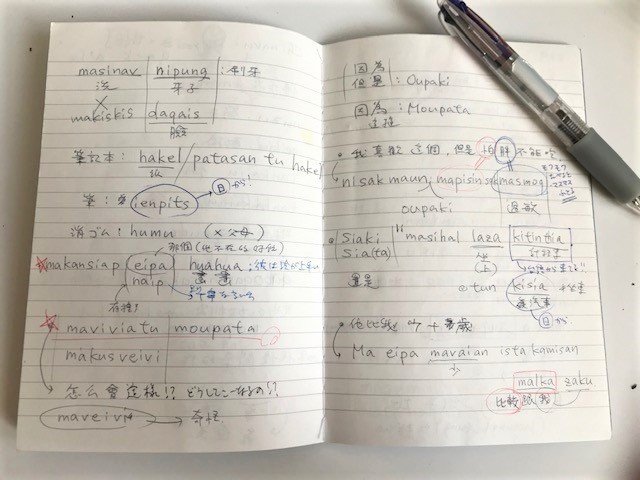 masinav nipung : 刷牙
洗 牙子
makiskis daqais
臉
筆記本: hakel / patasan tu hakel
紙
筆: ienpits 日から!
消ゴム: humu (× 父母)
那個
makansiap eipa hyahua
naip 畫畫
maviviatu moupata
makusveivi
怎么會這樣!? どうしてこーなるの!?
maveivi → 奇怪
因為
但是 : Oupaki
因為 : Moupata
這種
我喜歡這個, 但是怕胖不能吃
nisak maun, mapisin masmoq
oupaki 過敏
Siaki "masihal laza kitinbia
Sia(ta) 坐
還是 (上)
台語から來てる"
tun kisia
日から
他比我
Ma eipa mavaian ista kamisan
少
malka zaku
比較